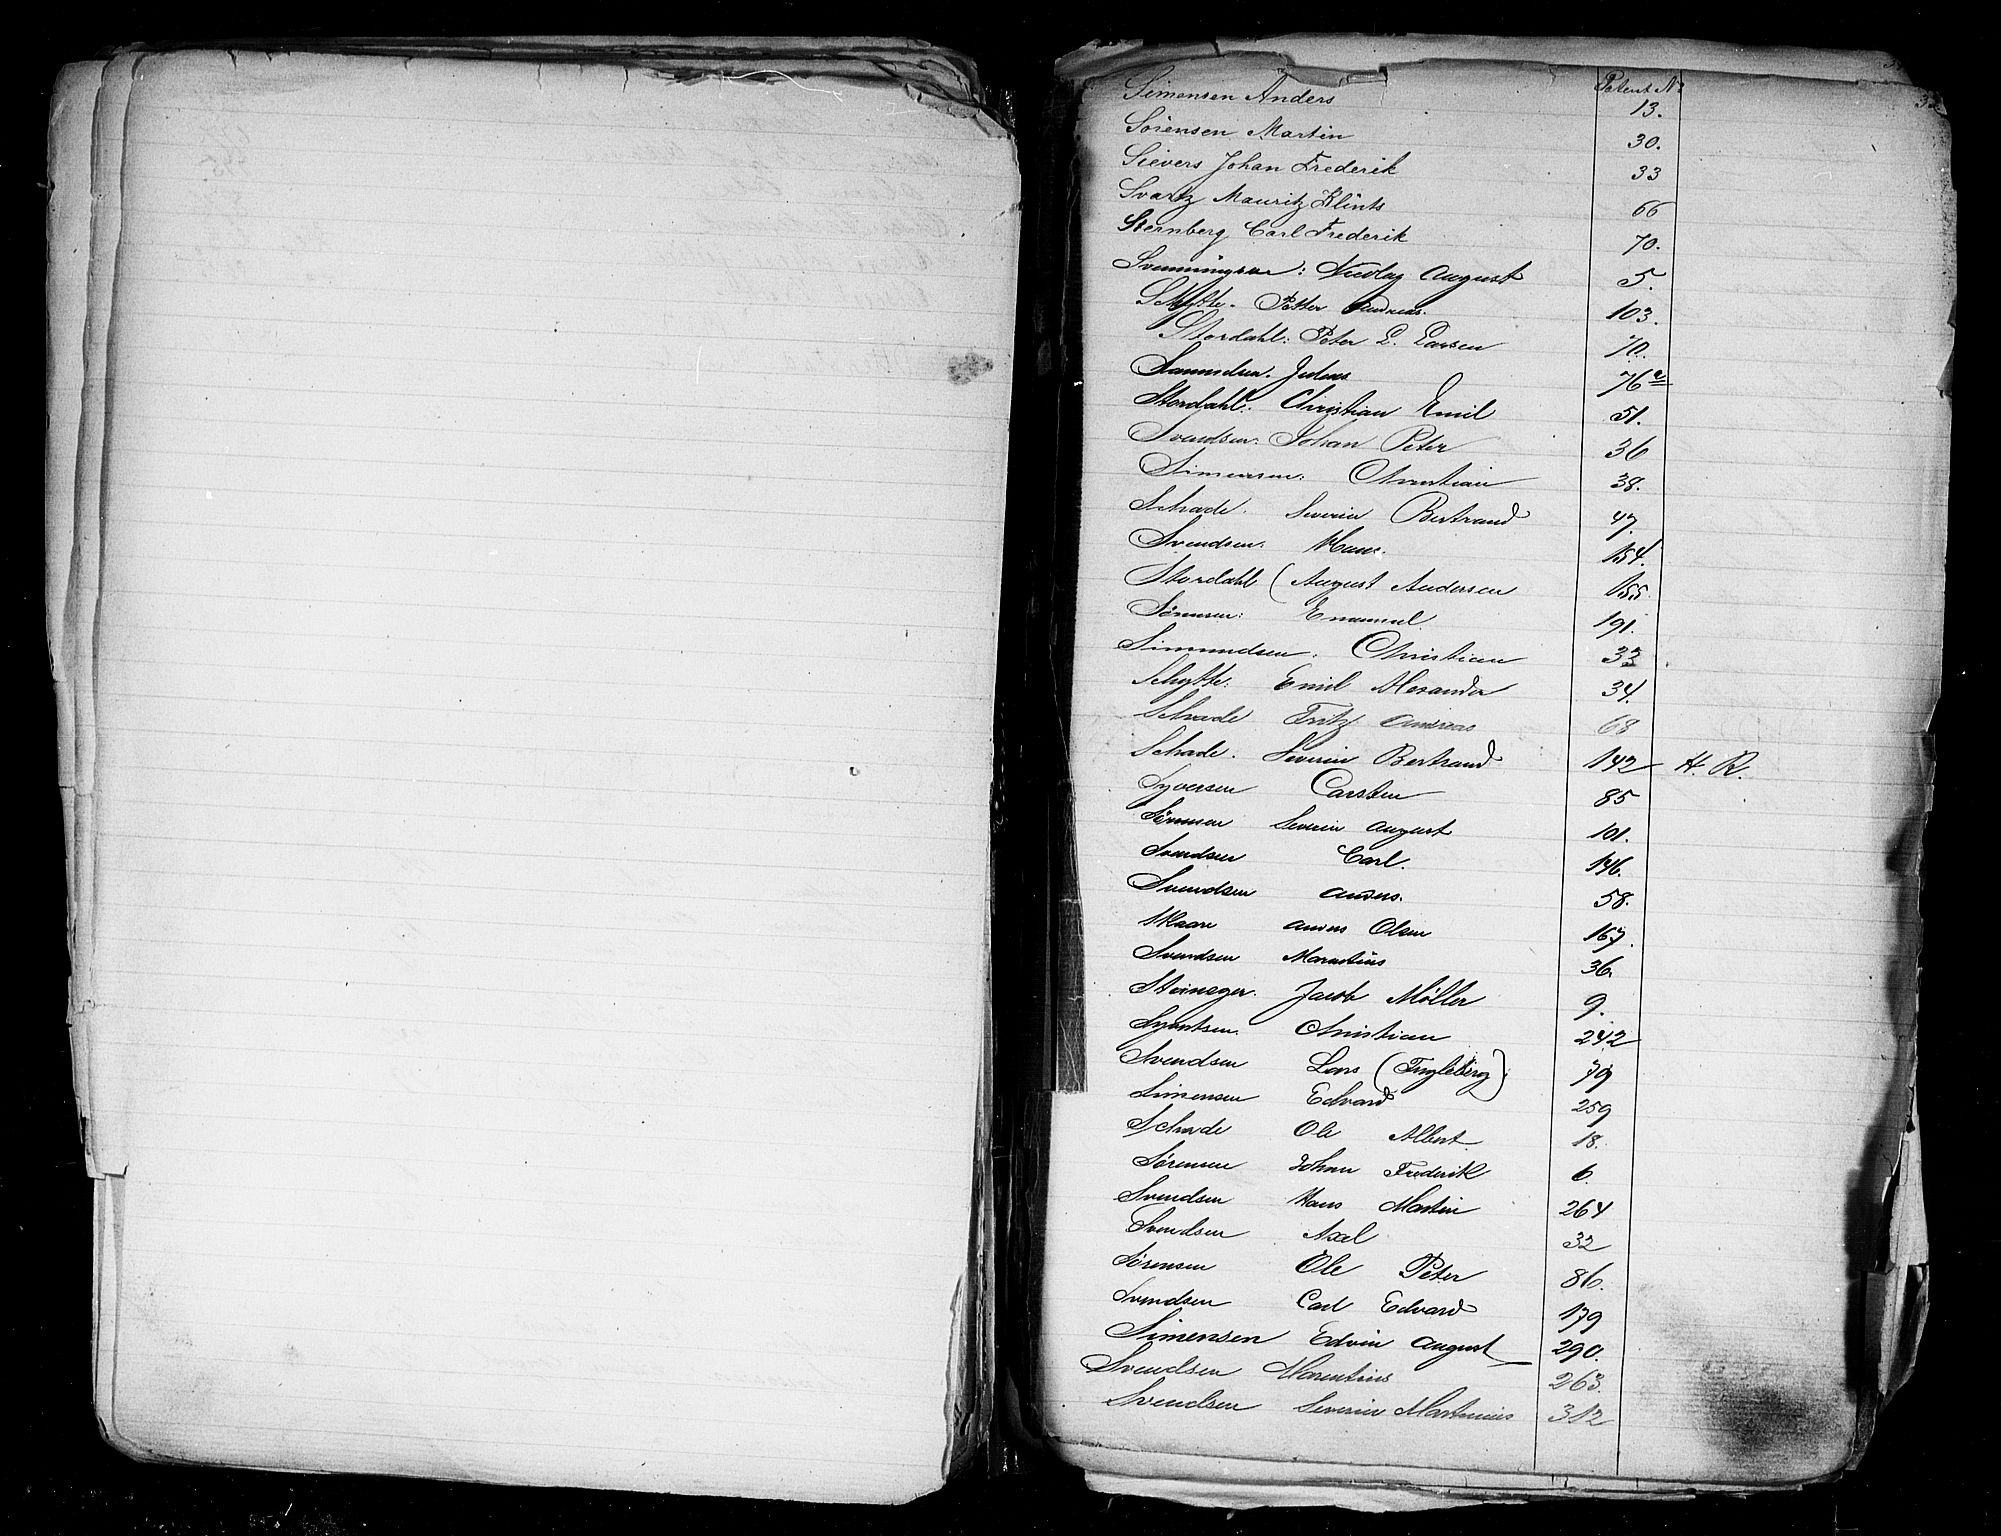 Patent No
32
Simensen Anders 13.
Sörensen Martin 30.
Sievers Johan Frederik 33
Svartz Mauritz Klints 66
Sternberg Carl Frederik 70.
Svenningsen: Nicolay August 5.
Schytte. Petter Andreas. 103.
Stordahl: Peter E. Larsen 70.
Samuelsen. Jedeas 76
Stordahl. Christian Emil 51.
Svendsen: Johan Peter 36
Simensen: Christian 38.
Schade. Severin Bertrand 47.
Svendsen: Hans. 154.
Stordahl (August Andersen 155.
Sørensen: Emanuel 191.
Simundsen. Christian 33
Schytte. Emil Alexander 34.
Schade Fritz Andreas 68
Schade. Severin Bertrand 142 H. R.
Syversen Carsten 85
Sørensen Severin August 101.
Svendsen Carl. 146.
Svendsen Anders. 58.
Skaare Anders Olsen 167.
Svendsen Marentius 36.
Steineger. Jacob Møller 9.
Syvertsen. Christian 242
Svendsen Lars (Ingleberg). 79
Simensen Edvard 259
Schade Ole Albert 18.
Sørensen Johan Frederik 6.
Svendsen Hans Martin 264
Svendsen Axel 32
Sørensen Ole Peter 86.
Svendsen Carl Edvard 179
Simensen Edvin August 290.
Svendsen Marentius 263.
Svendsen Severin Martinius 312